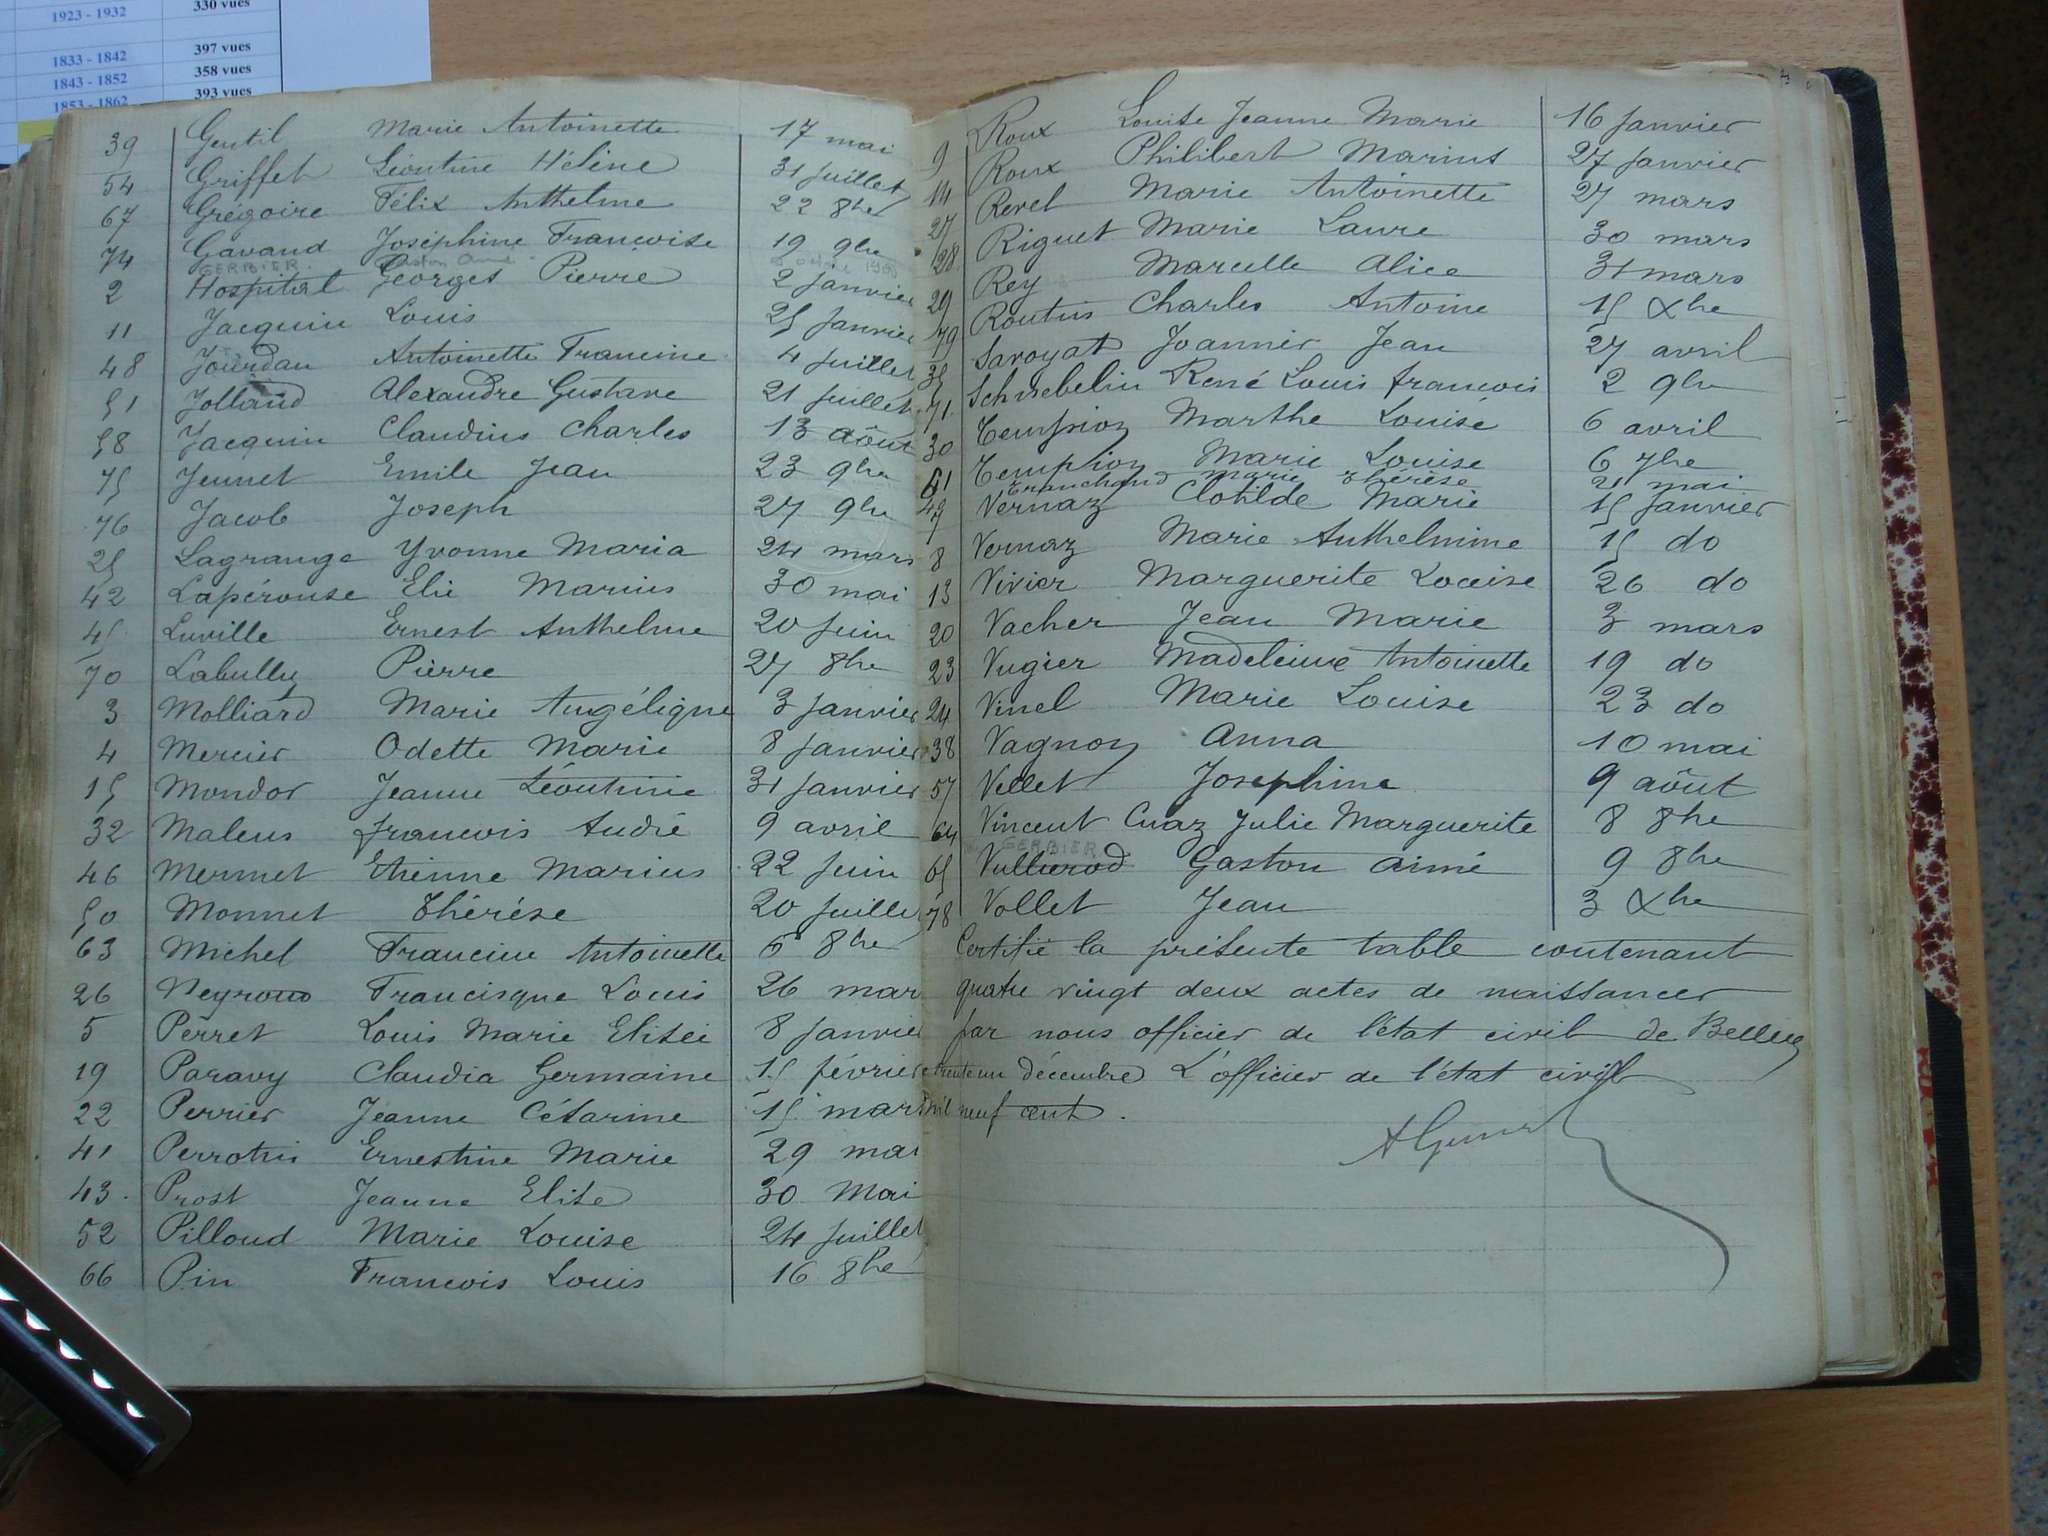 1923 - 1932 330 vues
1833 - 1842 397 vues
1843 - 1852 358 vues
1853 - 1862 393 vues
39 Gentil Marie Antoinette 17 mai
54 Griffet Léontine Hélène 31 Juillet
67 Grégoire Félix Anthelme 22 8bre
74 Gavand Joséphine Francoise 19 9bre
GERBIER
2 Hospital Georges Pierre 2 Janvier
11 Jacquin Louis 25 Janvier
48 Jourdan Antoinette Francine 4 Juillet
51 Jolland Alexandre Gustave 21 Juillet
58 Jacquin Claudius Charles 13 août
75 Jeunet Emile Jean 23 9bre
76 Jacob Joseph 27 9bre
25 Lagrange Yvonne Maria 24 mars
42 Lapérouse Elie Marius 30 mai
45 Luville Ernest Anthelme 20 Juin
70 Labully Pierre 27 8bre
3 Molliard Marie Angélique 3 Janvier
4 Mercier Odette Marie 8 Janvier
15 Mondor Jeanne Léontine 31 Janvier
32 Malens francois André 9 avril
46 Mermet Etienne Marius 22 Juin
50 Monnet Thérèse 20 Juillet
63 Michel Francine Antoinette 6 8bre
26 Neyroud Francisque Louis 26 mar
5 Perret Louis Marie Elisée 8 Janvier
19 Paravy Claudia Germaine 15 février
22 Perrier Jeanne Césarine 15 mars
41 Perrotin Ernestine Marie 29 mai
43 Prost Jeanne Elise 30 Mai
52 Pilloud Marie Louise 24 Juillet
66 Pin Francois Louis 16 8bre
9 Roux Louise Jeanne Marie 16 Janvier
14 Roux Philibert Marius 27 Janvier
27 Revel Marie Antoinette 27 mars
28 Riguet Marie Laure 30 mars
29 Rey Marcelle Alice 31 mars
79 Routin Charles Antoine 15 Xbre
35 Savoyat Joannès Jean 27 avril
71 Schnebelin René Louis francois 2 9bre
30 Tempion Marthe Louise 6 avril
61 Tempion Marie Louise 6 7bre
Tranchand Marie Thérèse 21 mai
7 Vernaz Clotilde Marie 15 Janvier
8 Vernaz Marie Anthelmine 15 do
13 Vivier Marguerite Louise 26 do
20 Vacher Jean Marie 3 mars
23 Vugier Madeleine Antoinette 19 do
24 Vinel Marie Louise 23 do
38 Vagnon Anna 10 mai
57 Vellet Josephine 9 août
64 Vincent Cuaz Julie Marguerite 8 8bre
GERBIER
65 Vullierod Gaston Aimé 9 8bre
78 Vollet Jean 3 Xbre
Certifié la présente table contenant
quatre vingt deux actes de naissances
par nous officier de l'état civil de Belley
trente un décembre L'officier de l'état civil
mil neuf cent.